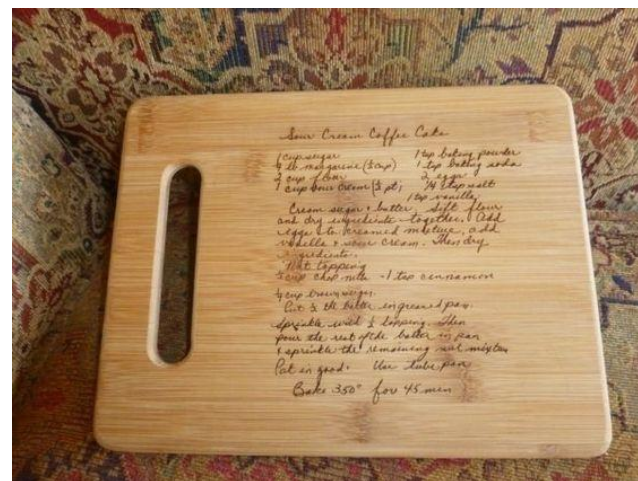 Sour Cream Coffee Cake
1 cup sugar 1 tsp baking powder
¼ lb margarine (½ cup) 1 tsp baking soda
2 cup flour 2 eggs
1 cup sour cream (½ pt) ¼ tsp salt
1 tsp vanilla
Cream sugar + butter. Sift flour
and dry ingredients together. Add
eggs to creamed mixture, add
vanilla + sour cream. Then dry
ingredients.
Nut topping
cup chop nuts - 1 tsp cinnamon
¼ cup brown sugar.
Put ½ the batter in greased pan.
Sprinkle with ½ topping. Then
pour the rest of the batter in pan
+ sprinkle the remaining nut mixture
Pat in good. Use tube pan
Bake 350° for 45 min